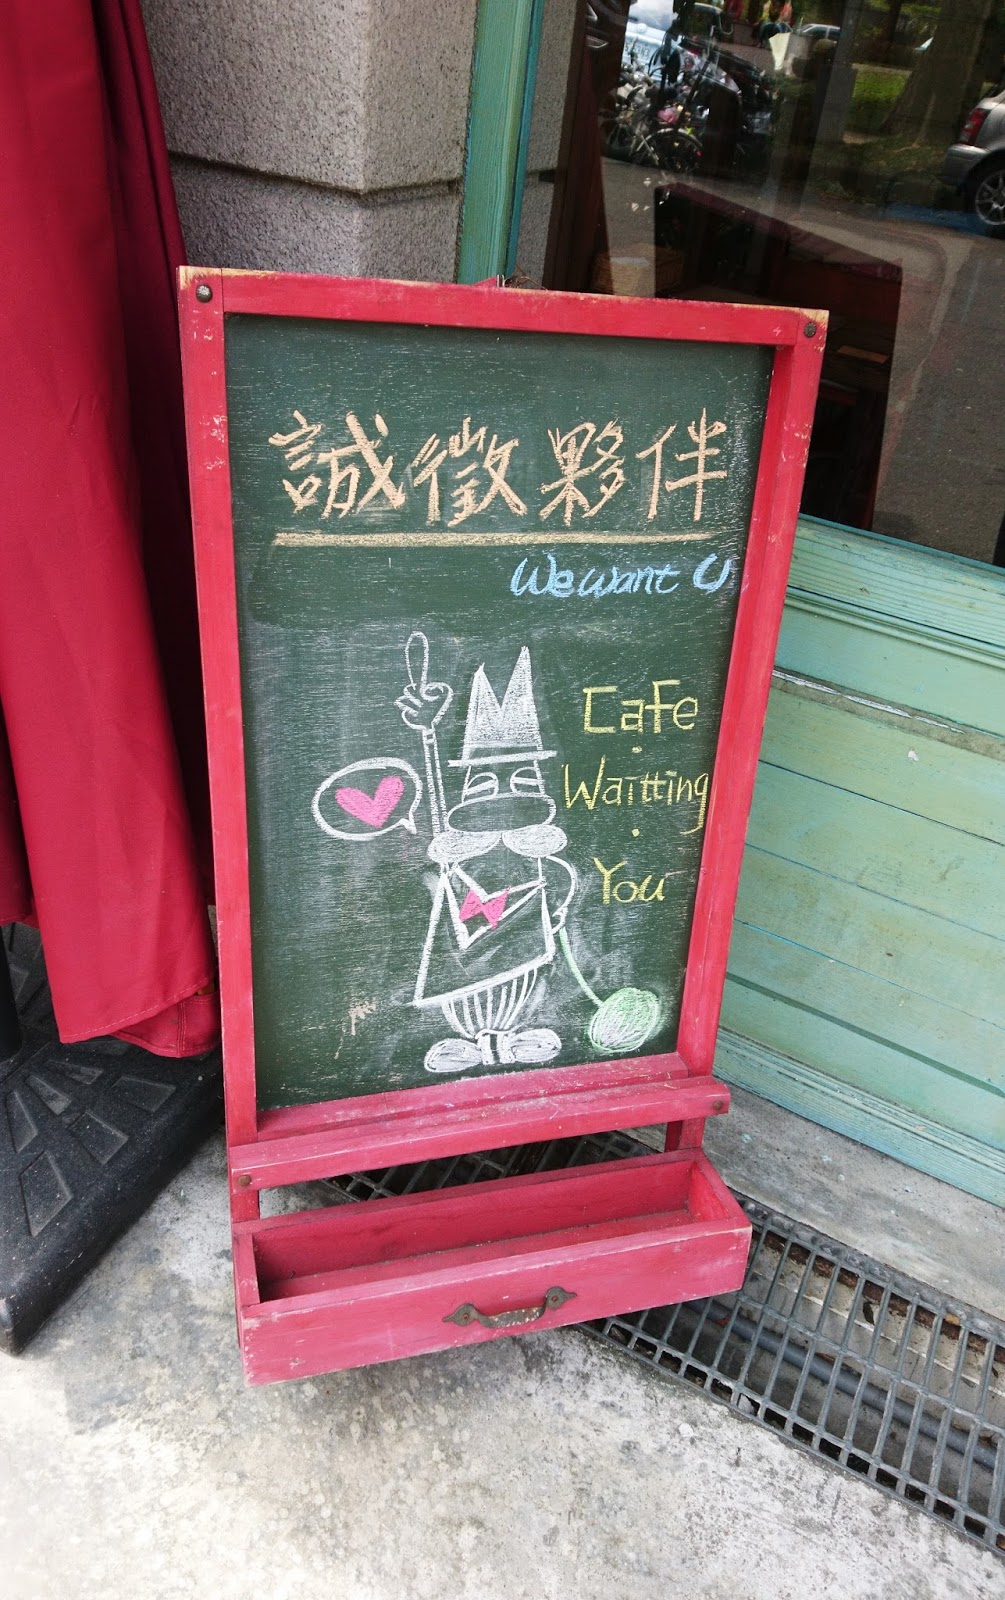 誠徵夥伴
We want U
Cafe
·
Waitting
·
You